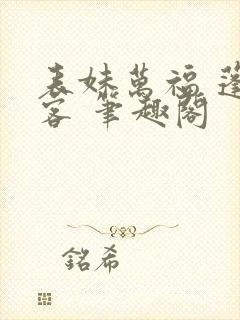 表妹萬福 蓬
客 筆趣閣
銘希